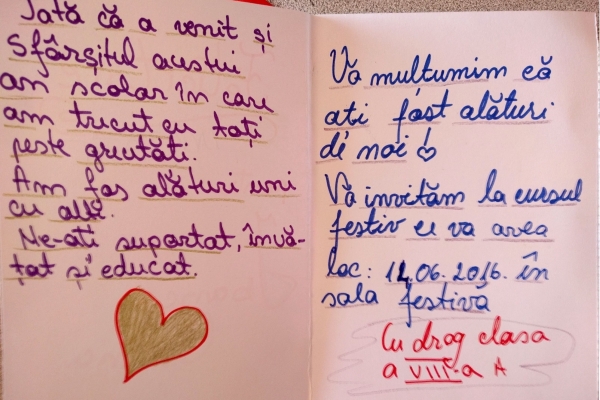 Iată că a venit și
sfârșitul acestui
an școlar în care
am trecut cu toți
peste greutăti.
Am fos alături uni
cu alți.
Ne-ati suportat, învă-
țat și educat.
Vă multumim că
ati fost alături
de noi!
Vă invităm la cursul
festiv ce va avea
loc: 14.06.2016. în
sala festivă
Cu drag clasa
a VIII-a A